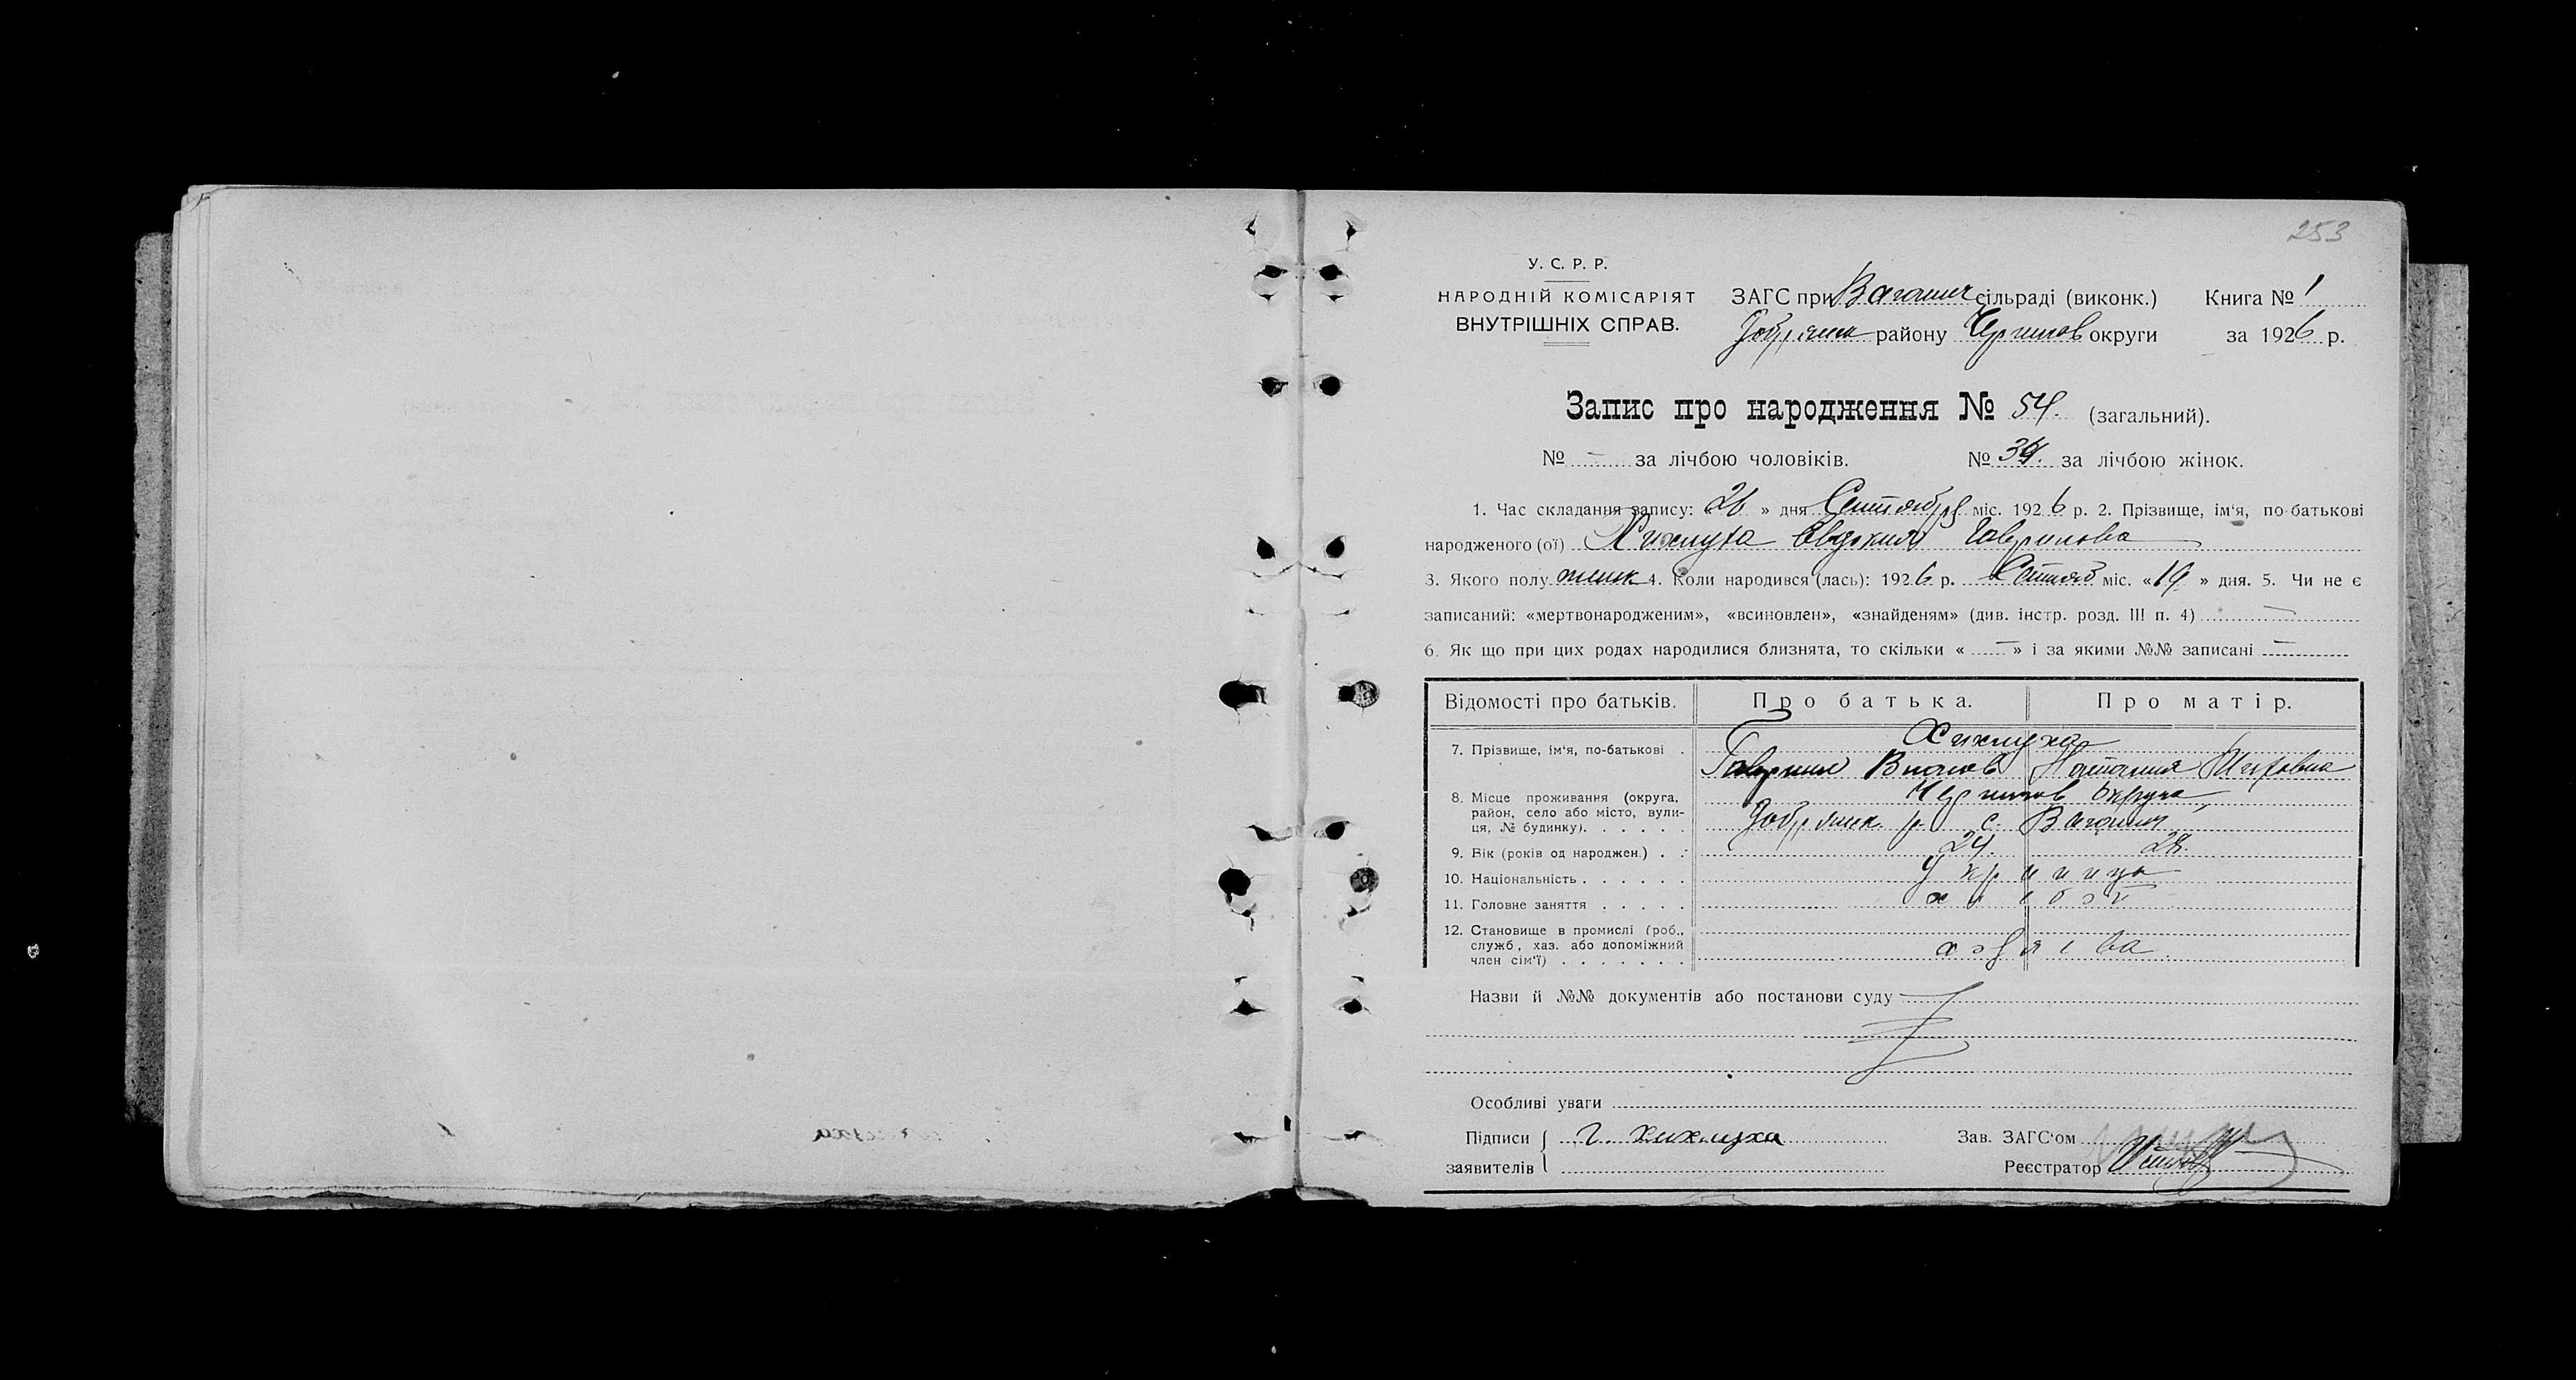 253
У. С. Р. Р.
НАРОДНІЙ КОМІСАРІЯТ
ВНУТРІШНІХ СПРАВ.
ЗАГС при Ваганич сільраді (виконк.) Книга № 1
Добрянск району Чернигов округи за 1926 р.
Запис про народження № 54. (загальний).
№ - за лічбою чоловіків. № за лічбою жінок.
1. Час складання запису: 26 » дня Сентября міс. 1926 р. 2. Прізвище, ім'я, по-батькові
народженого (ої) Хихлуха Евдокия Гаврилова
3. Якого полу женск 4. Коли народився (лась): 1926 р. Сентяб міс. «19» дня. 5. Чи не є
записаний: «мертвонародженим», «всиновлен», «знайденям» (див. інстр. розд. III п. 4) —
6. Як що при цих родах народилися близнята, то скільки « — » і за якими №№ записані —
Відомості про батьків. Про батька. Про матір.
7. Прізвище, ім'я, по-батькові . Хихлуха
Гавриил Наталия
8. Місце проживання (округа, Чернигов округа,
район, село або місто, вули-
ця, № будинку). . . . . . Добрянск. р. с. Ваганич
9. Вік (років од народжен.) . . 24. 28.
10. Національність . . . . . . украинцы
11. Головне заняття . . . . . хлебоп
12. Становище в промислі (роб.,
служб, хаз. або допоміжний
член сім'ї) . . . . . . . хозяева
Назви й №№ документів або постанови суду
Особливі уваги
Підписи Г. Хихлуха Зав. ЗАГС'ом
заявителів Реєстратор